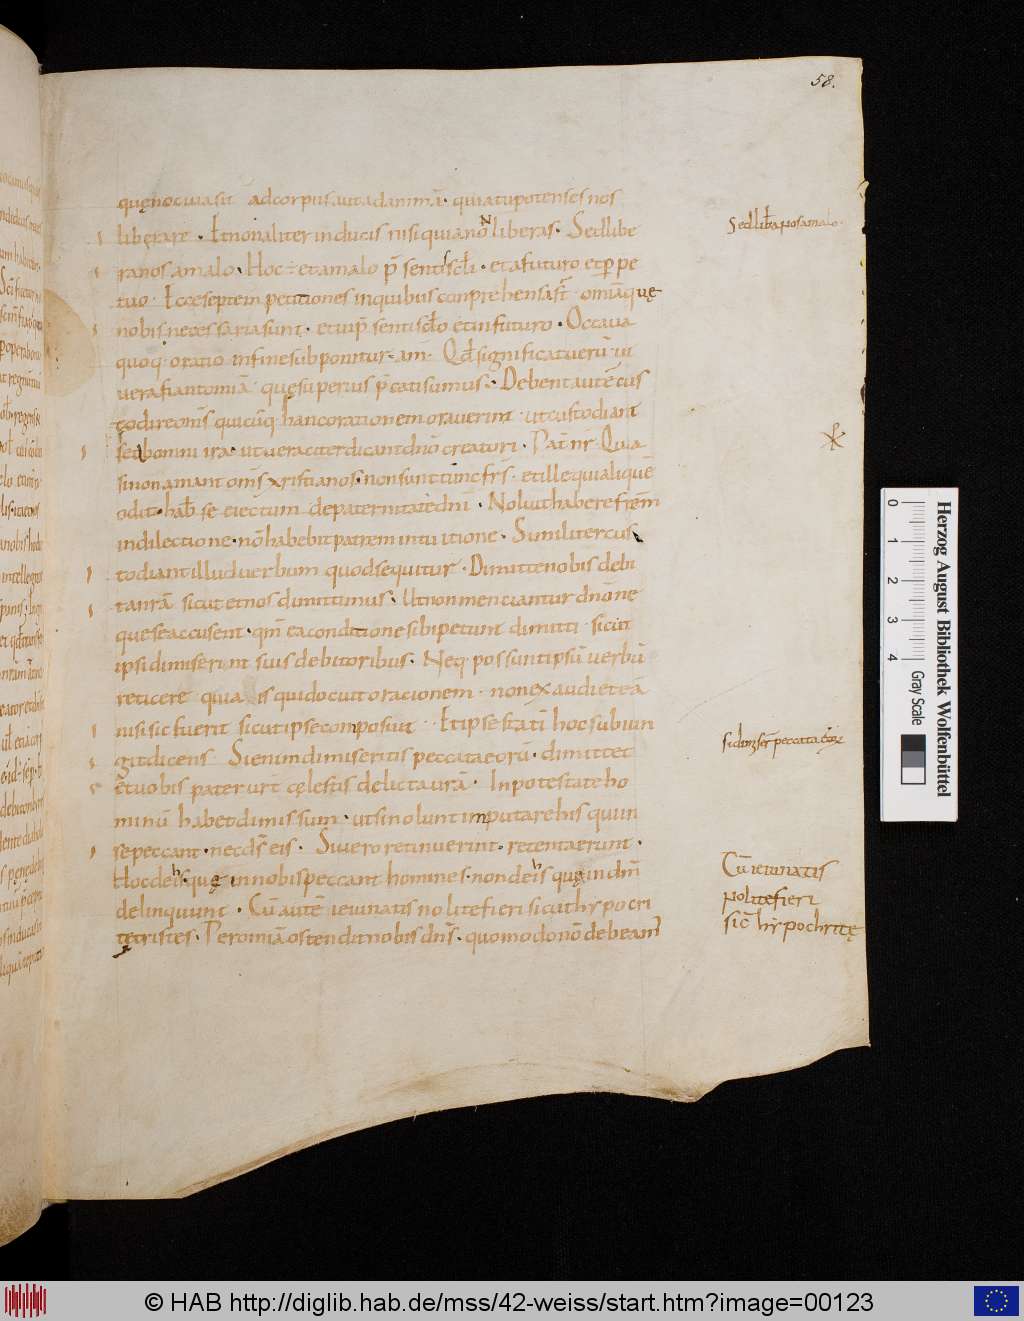 58.
quę nocuia sit ad corpus aut ad animā· quia tu potens es nos
liberare · Et non aliter inducis nisi quia noN liberas· Sed libe
ra nos a malo · Hoc ÷ et a malo p̄sentis scłi · et a futuro et ꝑpe
tuo · Ecce septem petitiones in quibus conprehensa s̄t omīa quę
nobis necessaria sunt · et in p̄senti scło et in futuro · Octaua
quoq· oratio in fine subponitur· am̄· Qđ significat uerū· ut
uera fiant omīa quę superius p̄cati sumus· Debent autē cus
todire om̄s quicūq· hanc orationem orauerint · ut custodiant
se ab omni ira· ut ueraciter dicant dn̄o creatori · Pat̄ nr̄ Quia
si non amant om̄s xristianos· non sunt tunc fr̄s · et ille qui aliquē
odit· hab& se eiectum de paternitate dn̄i · Noluit habere frem̄
in dilectione· non̄ habebit patrem in tuitione · Similiter cus
todiant illud uerbum quod sequitur · Dimitte nobis debi
ta nr̄ā sicut et nos dimittimus · Ut non mentiantur dn̄o ne
que se accusent · qm̄ ea conditione sibi petunt dimitti sicut
ipsi dimiserint suis debitoribus · Neq· possunt ipsū uerbū
reticere quia is qui docuit orationem · non exaudiet eā
nisi sic fuerit sicut ipse composuit · Et ipse statī hoc subiun
git dicens · Si enim dimiseritis peccata eorū · dimittet
et uobis pater ur̄ cęlestis delicta urā · In potestate ho
minū habet dimissum · ut si nolunt imputare his qui in
se peccant · nec ds̄ eis · Si uero retinuerint · retenta erunt ·
Hoc de his quę in nobis peccant homines · non de his quę in dm̄
delinquunt · Cū autē ieiunatis nolite fieri sicut hypocri
te tristes · Per omīa ostendit nobis dn̄s · quomodo nō debeam̄
Sed libera nos a malo·
si dimiser̄ peccata eorum
Cū ieiunatis
nolite fieri
sic̄ hypochritę
0 1 2 3 4
Gray Scale
Herzog August Bibliothek Wolfenbüttel
© HAB http://diglib.hab.de/mss/42-weiss/start.htm?image=00123